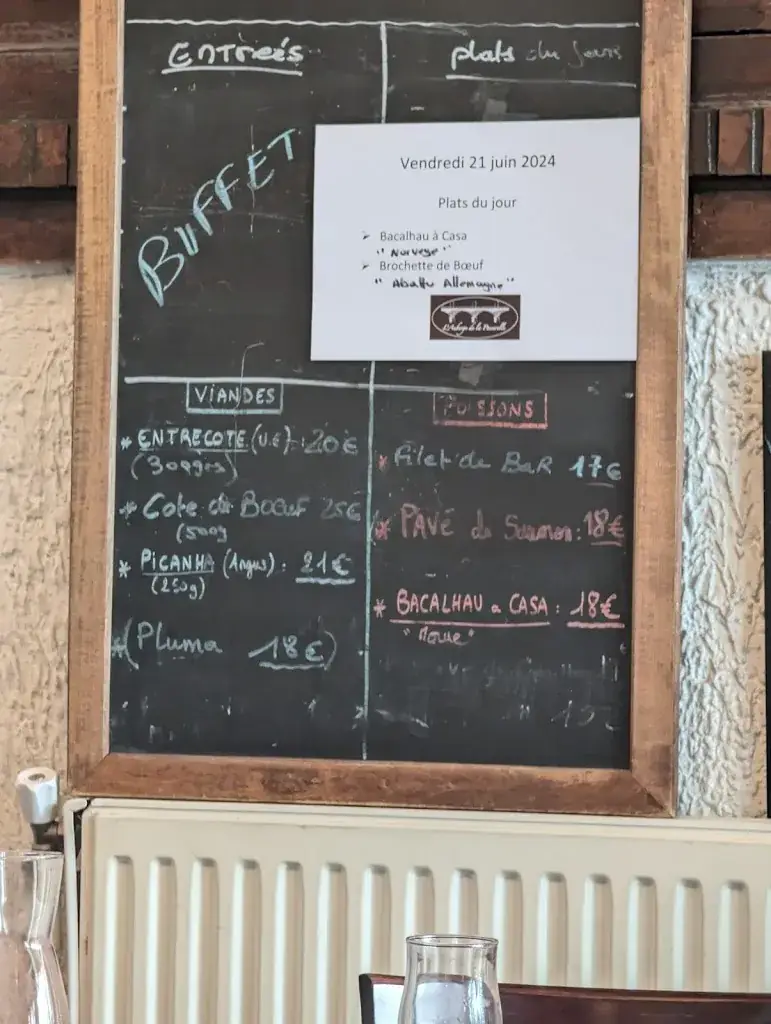 ENTREéS
plats du jour
BUFFET
Vendredi 21 juin 2024
Plats du jour
➢ Bacalhau à Casa
"Norvege"
➢ Brochette de Bœuf
"Abattu Allemagne"
VIANDES
* ENTRECOTE (U.E): 20€
(300grs)
* Cote de Boeuf 25€
(500g
* PICANHA (Angus): 21€
(250g)
*(Pluma 18€)
POISSONS
* Filet de BaR 17€
(* PAVÉ de Saumon: 18€
* BACALHAU a CASA: 18€
"Morue"